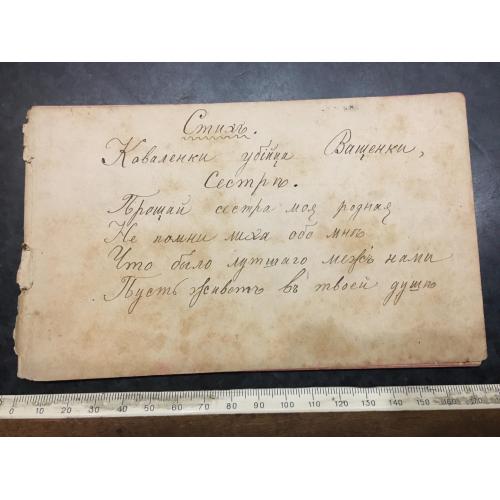 Стихъ.
Коваленки убійца Ващенки,
Сестрѣ.
Прощай сестра моя родная
Не помни лиха обо мнѣ
Что было лутшаго межъ нами
Пусть живетъ въ твоей душѣ
0 10 20 30 40 50 60 70 80 90 100 110 120 130 140 150 160